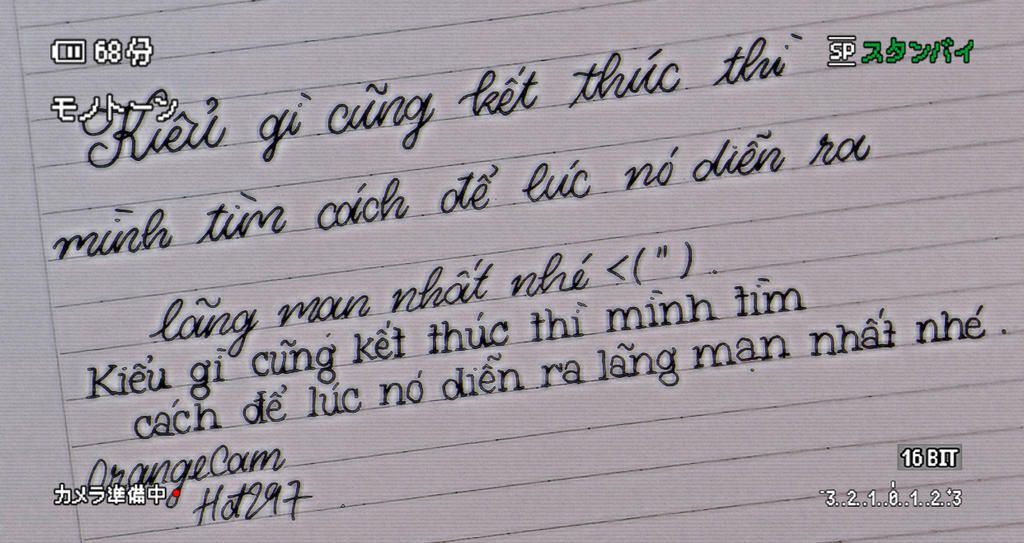 68分
SP スタンバイ
モノトーン
Kiểu gì cũng kết thúc thì
mình tìm cách để lúc nó diễn ra
lãng mạn nhất nhé <(")
Kiểu gì cũng kết thúc thì mình tìm
cách để lúc nó diễn ra lãng mạn nhất nhé.
OrangeCam
Hot297
16BIT
カメラ準備中
3..2..1..0..1..2..3